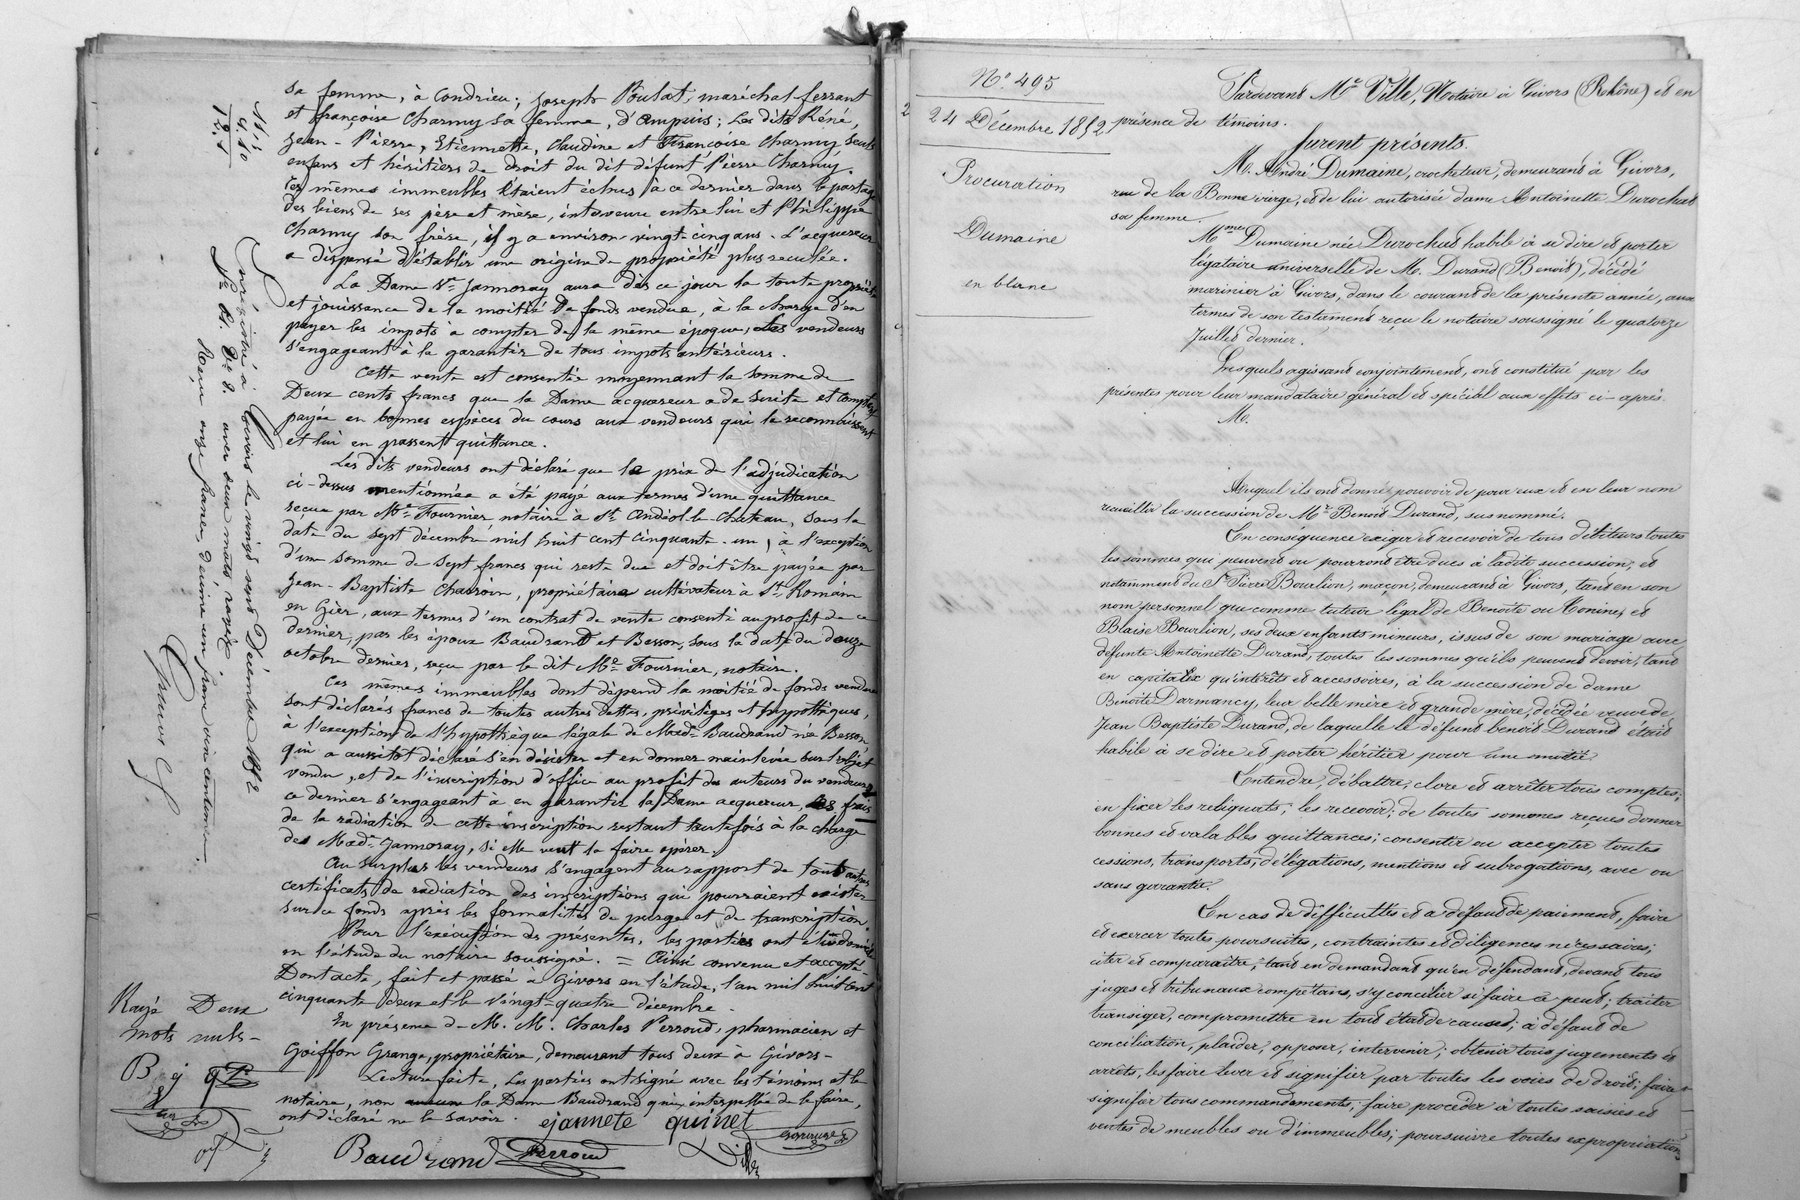 sa femme, à Condrieu; Joseph Poulat, maréchal ferrant
et françoise Charmy sa femme, d'ampuis; Les dits Réné,
Jean-Pierre, Etiennette, Claudine et Françoise Charmy, seuls
enfans et héritiers de droit du dit défunt Pierre Charmy.
Ces mêmes immeubles étaient échus à ce dernier dans le partage
des biens de ses père et mère, intervenu entre lui et Philippe
Charmy son frère, il y a environ vingt-cinq ans. L'acquereur
a dispensé d'établir une origine de propriété plus reculée.
La Dame Ve Jannoray aura dès ce jour la toute propriété
et jouissance de la moitié de fonds vendue, à la charge d'en
payer les impots à compter de la même époque, Les vendeurs
s'engageant à la garantir de tous impots antérieurs.
Cette vente est consentie moyennant la somme de
Deux cents francs que la Dame acquereur a de suite et comptant
payée en bonnes espèces du cours aux vendeurs qui le reconnaissent
et lui en passent quittance.
Les dits vendeurs ont déclaré que le prix de l'adjudication
ci-dessus mentionnée a été payé aux termes d'une quittance
reçue par Me Fournier notaire à St. Andéol-le-Chateau, sous la
date du sept décembre mil huit cent cinquante-un, à l'exception
d'une somme de sept francs qui reste due et doit être payée par
Jean-Baptiste propriétaire cultivateur à St. Romain
en Gier, aux termes d'un contrat de vente consenti au profit de ce
dernier, par les époux Baudrand et Besson, sous la date du douze
octobre dernier, reçu par le dit Me Fournier, notaire.
Ces mêmes immeubles dont dépend la moitié de fonds vendue
sont déclarés francs de toutes autres dettes, privilèges et hypothèques,
à l'exception de l'hypothèque légale de Made Baudrand née Besson
qui a aussitot déclaré s'en désister et en donner mainlevée sur l'objet
vendu, et de l'inscription d'office au profit des auteurs du vendeur,
ce dernier s'engageant à en garantir la Dame acquereur, les frais
de la radiation de cette inscription restant toutefois à la charge
de Made Jannoray, si elle veut la faire opérer.
Au surplus les vendeurs s'engagent au rapport de tout autres
certificats de radiation des inscriptions qui pourraient exister
sur ce fonds après les formalités de purge et de transcription.
Pour l'exécution des présentes, les parties ont élu domicile
en l'étude du notaire soussigné. = Ainsi convenu et accepté.
Dont acte, fait et passé à Givors en l'étude, l'an mil huit cent
cinquante deux et le vingt-quatre décembre.
En présence de M. M. Charles Perroud, pharmacien et
Goiffon Grange, propriétaire, demeurant tous deux à Givors-
Lecture faite, Les parties ont signé avec les témoins et le
notaire, non la Dame Baudrand qui, interpellée de le faire,
ont déclaré ne le savoir.
jannete quinet
Baudrand Perroud
Rayé Deux
mots nuls-
Enregistré à Givors le vingt neuf Décembre 1852
avec deux mots rayés
Reçu onze francs, dixième un franc dix centimes.
No. 495
24 Décembre 1852
Procuration
Dumaine
en blanc
Pardevant Me Ville, Notaire à Givors (Rhône) et en
présence de témoins.
furent présents.
M. André Dumaine, crocheteur, demeurant à Givors,
rue de la Bonne vierge, et de lui autorisée dame Antoinette Durochat
sa femme.
Mme Dumaine née Durochat habile à se dire et porter
légataire universelle de M. Durand (Benoit), décédé
marinier à Givors, dans le courant de la présente année, aux
termes de son testament reçu le notaire soussigné le quatorze
Juillet dernier.
Lesquels agissant conjointement, ont constitué par les
présentes pour leur mandataire général et spécial aux effets ci-après
M.
Auquel ils ont donné pouvoir de pour eux et en leur nom
recueillir la succession de Mr. Benoit Durand, susnommé.
En conséquence exiger et recevoir de tous débiteurs toutes
les sommes qui peuvent ou pourront être dues à ladite succession, et
notamment du Sr. Pierre Bourlion, maçon, demeurant à Givors, tant en son
nom personnel que comme tuteur légal de Benoite ou Tonine, et
Blaise Bourlion, ses deux enfants mineurs, issus de son mariage avec
défunte Antoinette Durand, toutes les sommes qu'ils peuvent devoir, tant
en capitaux qu'intérêts et accessoires, à la succession de dame
Benoite Darmancy, leur belle mère et grande mère, décédée veuve de
Jean Baptiste Durand, de laquelle le défunt benoit Durand était
habile à se dire et porter héritier pour une moitié.
Entendre, débattre, clore et arrêter tous comptes;
en fixer les reliquats; les recevoir; de toutes sommes reçues donner
bonnes et valables quittances; consentir ou accepter toutes
cessions, transports, délégations, mentions et subrogations, avec ou
sans garantie.
En cas de difficultés et à défaut de paiement, faire
et exercer toutes poursuites, contraintes et diligences nécessaires;
citer et comparaître, tant en demandant qu'en défendant, devant tous
juges et tribunaux compétans, s'y concilier si faire ce peut; traiter
transiger, compromettre en tout état de causes; à défaut de
conciliation, plaider, opposer, intervenir; obtenir tous jugements et
arrêts, les faire lever et signifier par toutes les voies de droit; faire
signifier tous commandements; faire procéder à toutes saisies et
ventes de meubles ou d'immeubles; poursuivre toutes expropriations